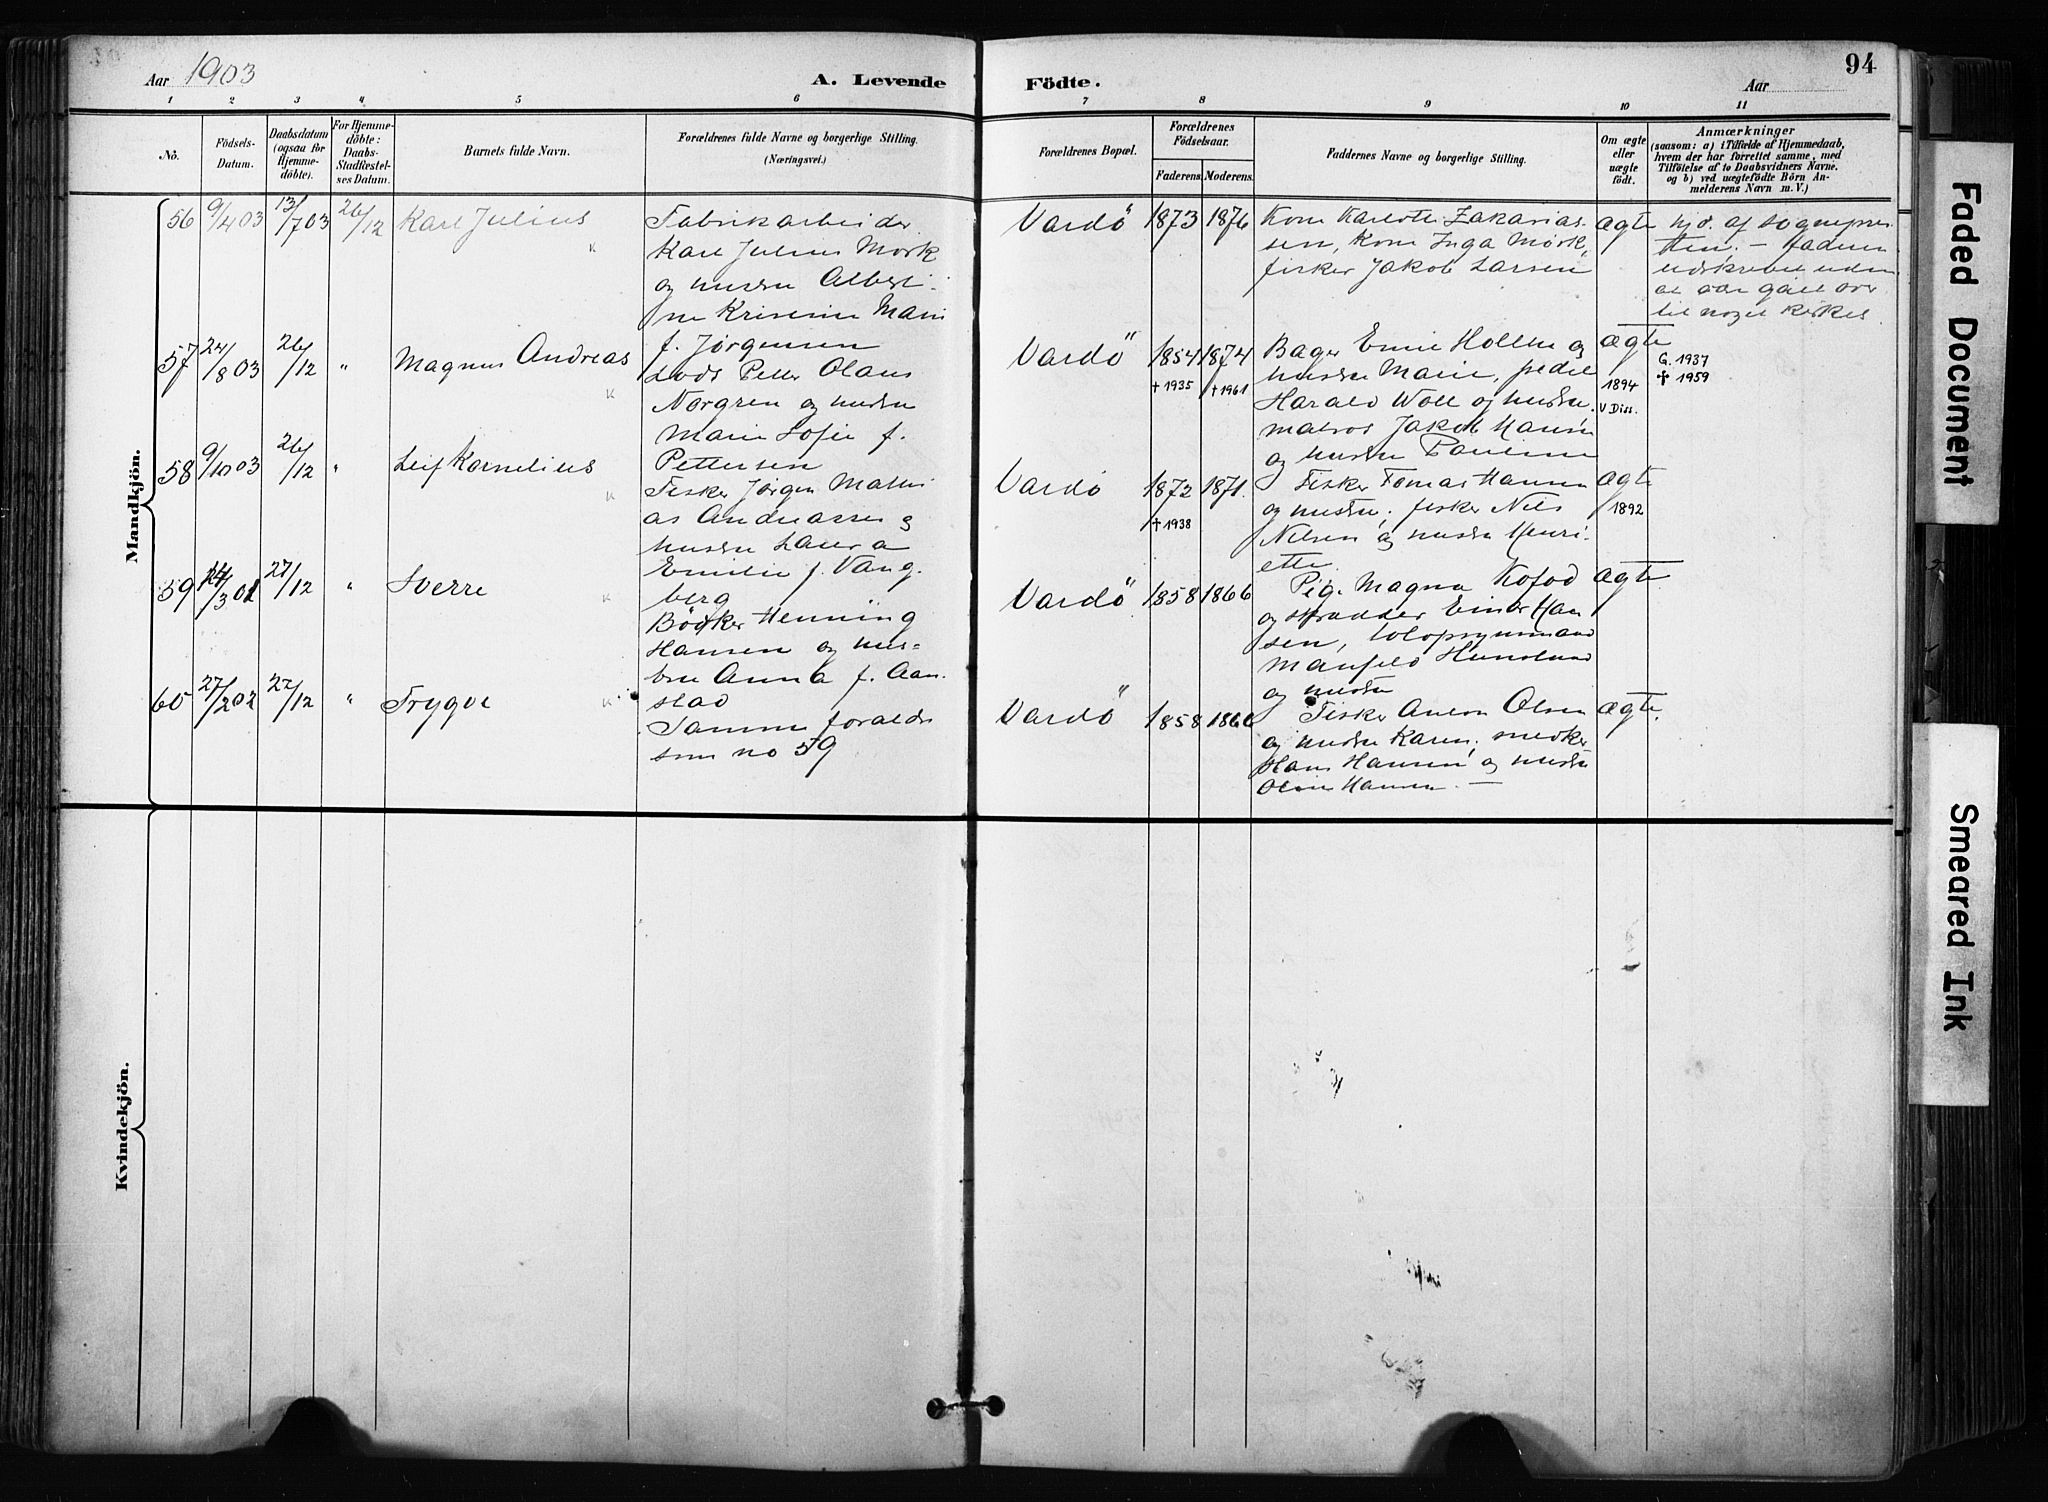 Aar 1903
A. Levende Födte.
Aar
94
1 2 3 4 5 6 7 8 9 10 11
No.
Födsels-
Datum.
Daabsdatum
(ogsaa for
Hjemme-
döbte).
For Hjemme-
döbte:
Daabs-
Stadfæstel-
ses Datum.
Barnets fulde Navn.
Forældrenes fulde Navne og borgerlige Stilling.
(Næringsvei.)
Forældrenes Bopæl.
Forældrenes
Födselsaar.
Faderens. Moderens.
Faddernes Navne og borgerlige Stilling.
Om ægte
eller
uægte
födt.
Anmærkninger
(saasom: a) i Tilfælde af Hjemmedaab,
hvem der har forrettet samme, med
Tilföielse af to Daabsvidners Navne.
og b) ved uægtefödte Börn An-
melderens Navn m. V.)
Mandkjön.
56 9/4 03 13/7 03 26/12 Karl Julius
Fabrikarbeider
Karl Julius Mørk
og hustru Alberti-
ne Kristine Marie
f. Jørgensen
Vardö 1873 1876
Kone Karlotte Zakarias-
sen, Kone Inga Mørk,
fisker Jakob Larsen
ægte
hjd. af sognepræ-
sten. - faderen
udskrevet uden
at være gaaet over
til noget kirkes.
57 24/8 03 26/12 " Magnus Andreas
Lods Petter Olaus
Norgren og hustru
Marie Sofie f.
Pettersen
Vardö 1854 1874
✝ 1935 ✝ 1961
Bager Emil Holthe og
hustru Marie, pedel
Harald Woll og hustru.
matros Jakob Hansen
og hustru Pauline
ægte
1894
V Diss.
G. 1937
✝ 1959
58 9/10 03 26/12 " Leif Kornelius
Fisker Jørgen Mathi-
as Andreassen og
hustru Laura
Emilie f. Vang-
berg
Vardö 1872 1871.
✝ 1938
Fisker Tomas Hansen
og hustru, fisker Nils
Nilsen og hustru Henri-
ette.
ægte
1892
59 /3 01 27/12 " Sverre
Bödker Henning
Hansen og hus-
tru Anna f. Aan-
stad
Vardö 1858 1866
Pige Magna Kofod
og Einar Han
sen,
Manfeld
og hustru
ægte
60 27/2 02 27/12 " Trygve
Samme forældre
som no 59
Vardö 1858 1866
Fisker Anton Olsen
og hustru Karen, snedker
Hans Hansen og hustru
Oline Hansen. -
ægte.
Kvindekjön.
Faded Document
Smeared Ink